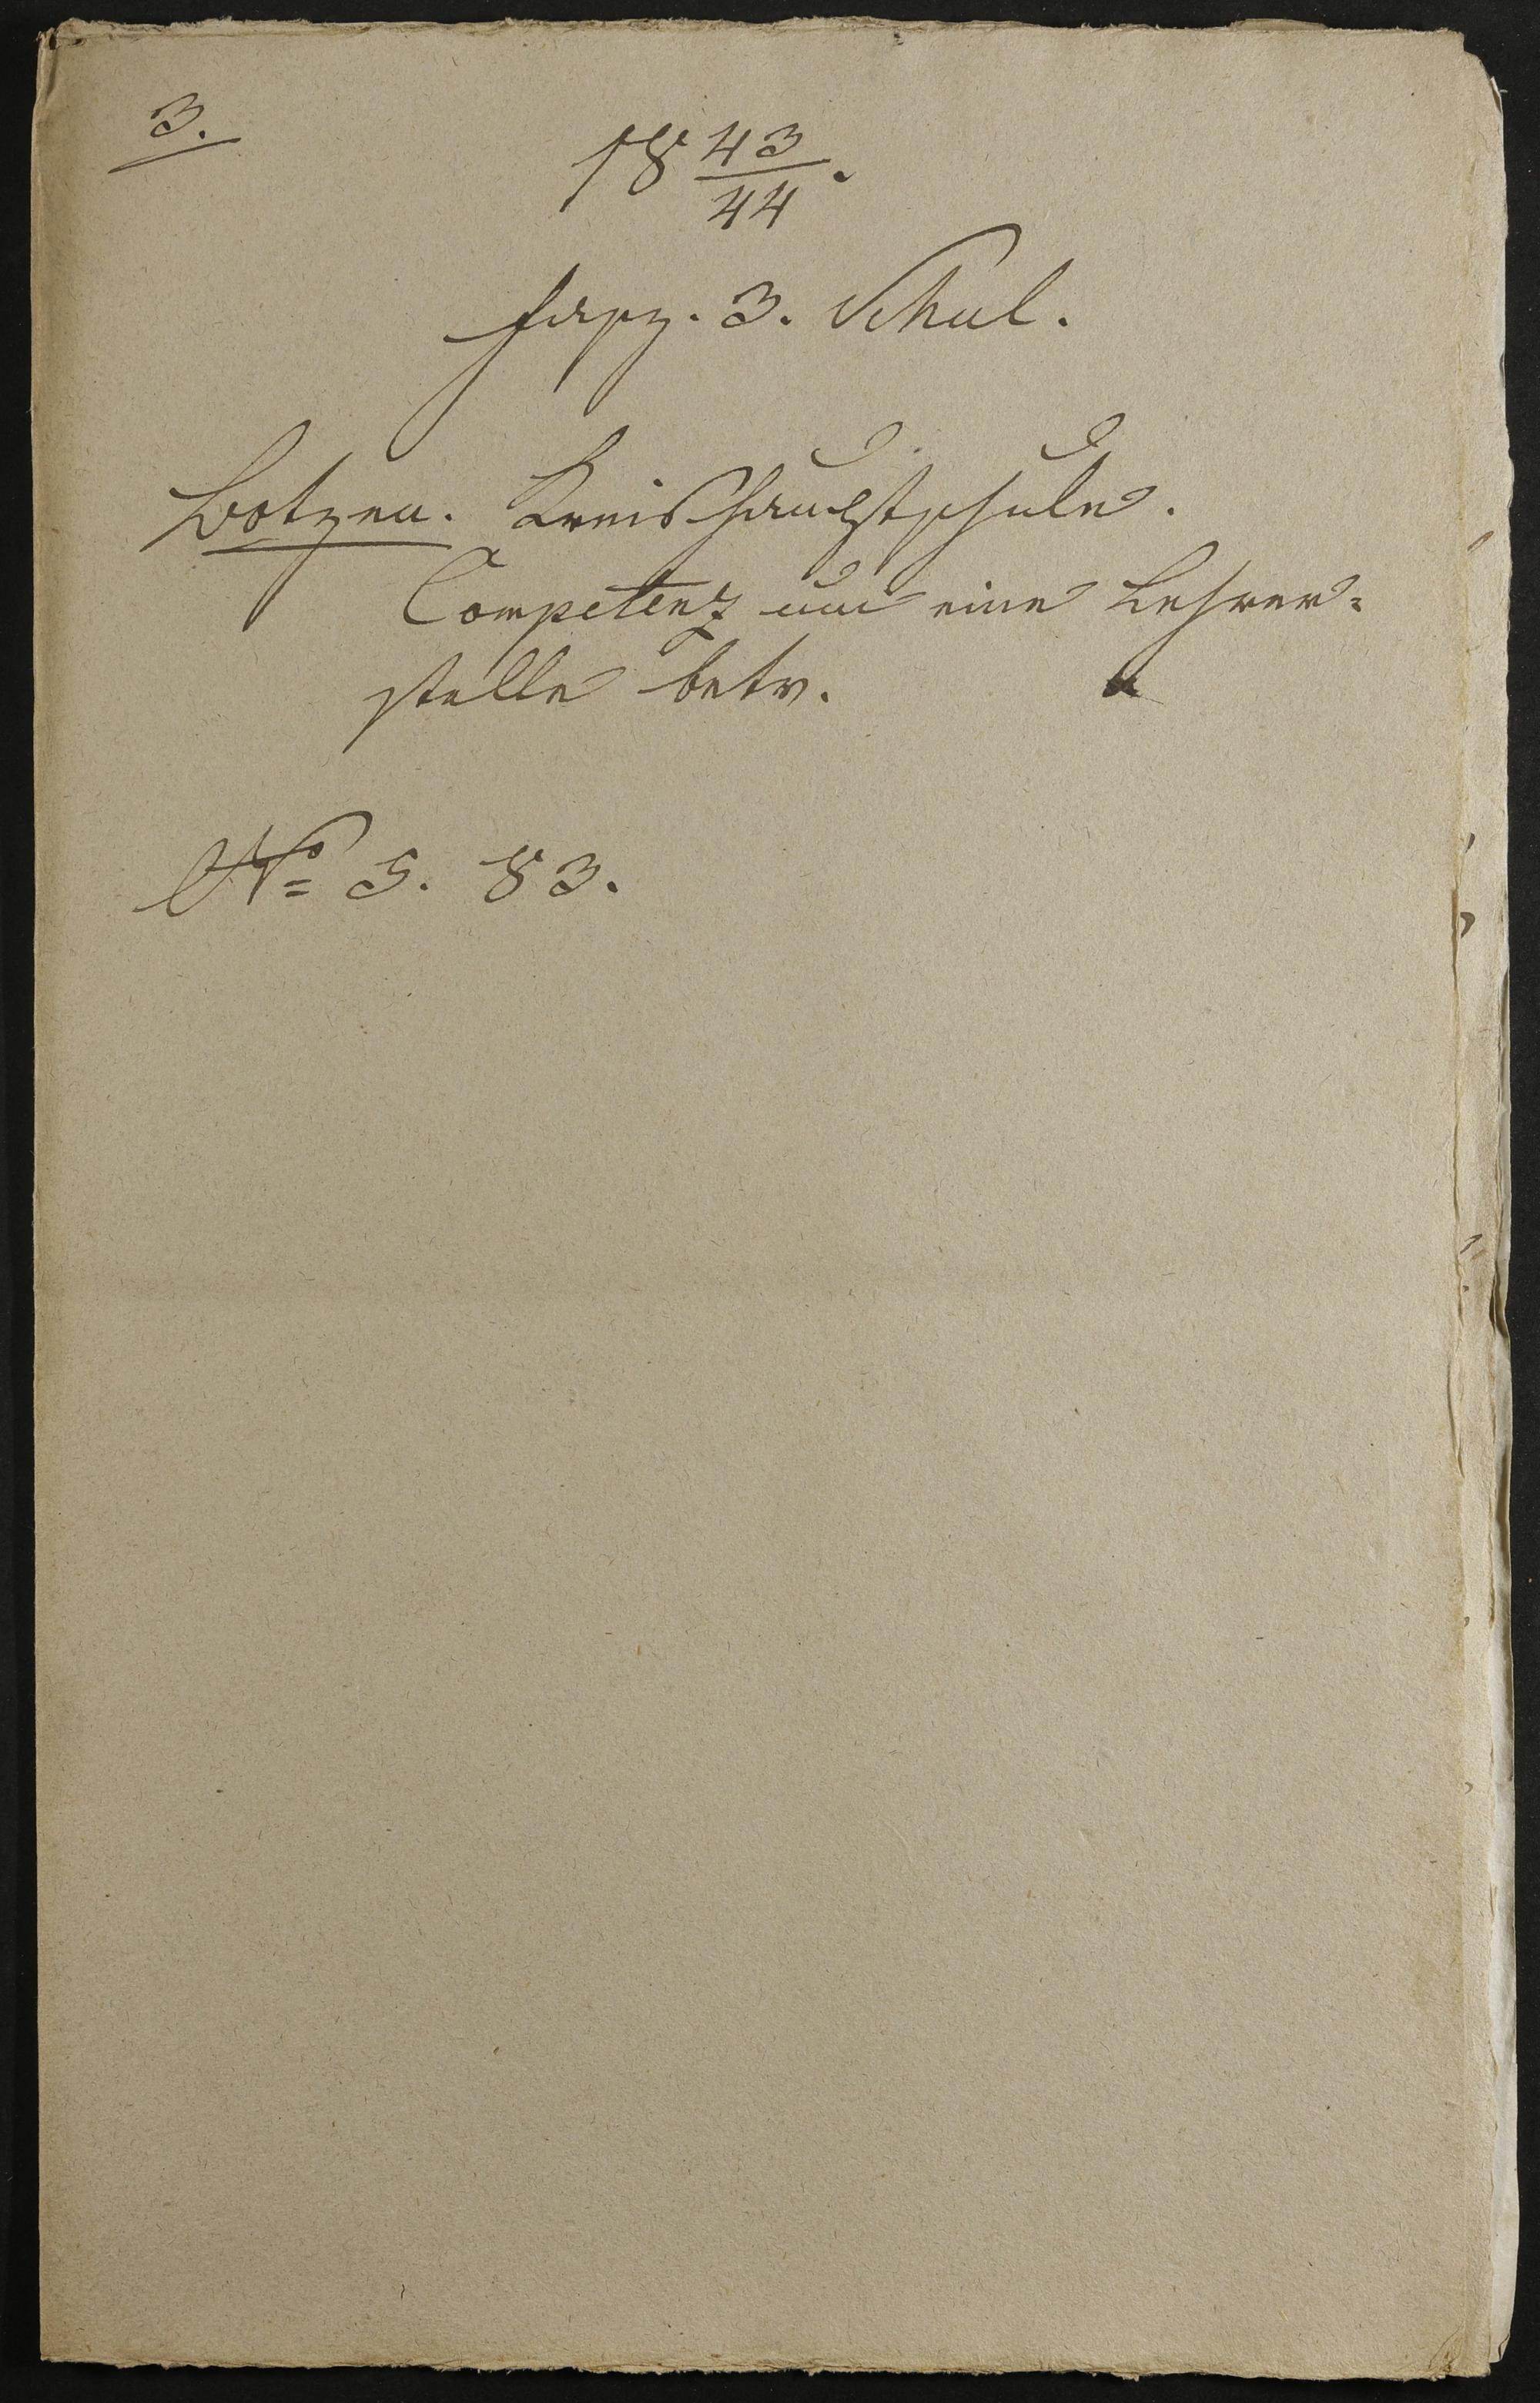 3.
18 43/44.
fasz. 3. Schul.
Botzen. Kreishauptschule.
Competenz um eine Lehrer=
stelle betr.
No 5. 83.